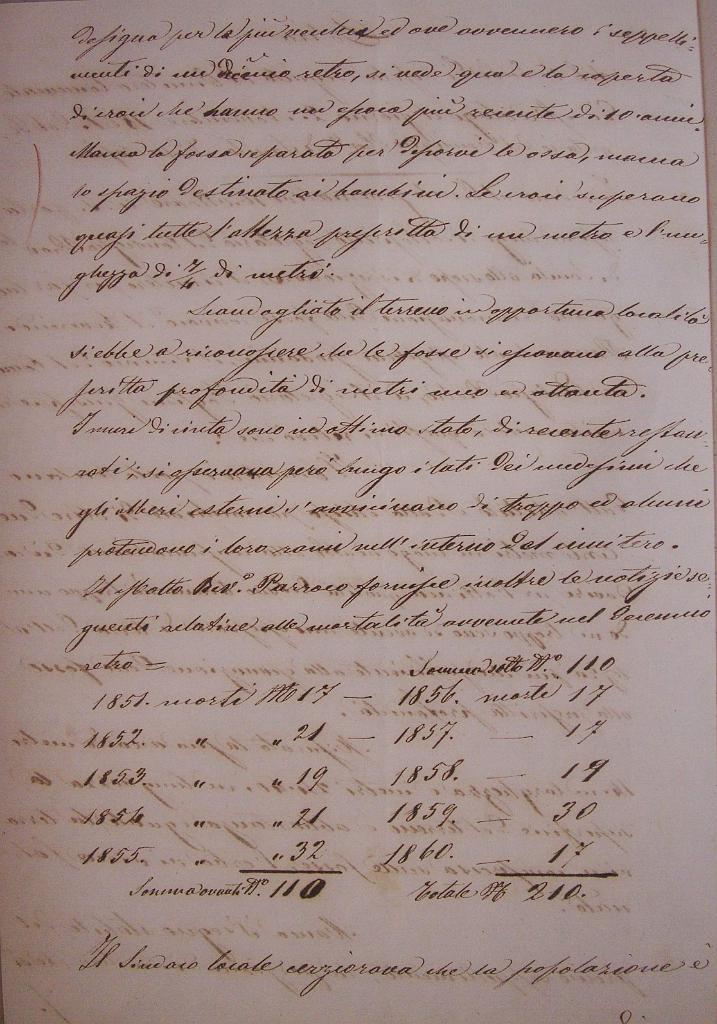 designa per la più vecchia ed ove avvennero i seppelli-
menti di un decenio retro, si vede qua e là coperta
di croci che hanno un epoca più recente di 10 anni.
Manca la fossa separata per deporvi le ossa, manca
lo spazio destinato ai bambini. Le croci superano
quasi tutte l'altezza prescritta di un metro e l'un-
ghezza di 7/4 di metro.
Scandagliato il terreno in opportuna località
si ebbe a riconoscere che le fosse si escavano alla pre-
scritta profondità di metri uno ed ottanta.
I muri di cinta sono in ottimo stato, di recente restau-
rati; si osservava però lungo i lati dei medesimi che
gli alberi esterni s'avvicinano di troppo ed alcuni
protendono i loro rami nell'interno del cimitero.
Il Rev.º Parroco fornisce inoltre le notizie se-
guenti relative alla mortalità avvenute nel decennio
retro = Somma sotto N.º 110
1851. morti Nº 17 — 1856. morti 17
1852. " " 21 — 1857. — 17
1853. " " 19 1858. — 19
1854 " " 21 1859. — 30
1855. " " 32 1860. — 17
Somma avanti N.º 110 Totale Nº 210.
Il Sindaco locale che la popolazione è